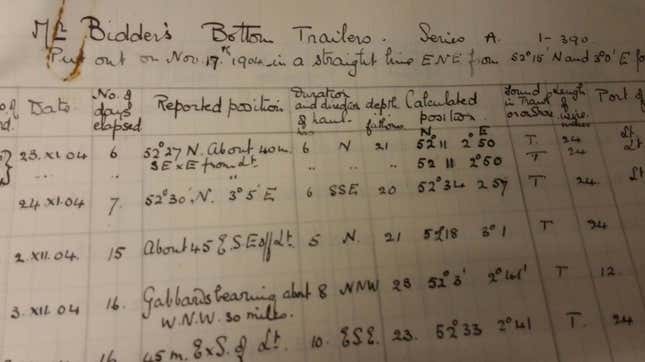 Mr Bidder's Bottom Trailers. Series A. 1-390
Put out on Nov. 17th, 1904 in a straight line ENE from 52°15' N and 3°0' E
Date No. of days elapsed Reported position Duration and direction of haul depth fathoms Calculated position N. E. Found in Trawl or on shore Length of wire Port of
23.XI.04 6 52°27 N. About 40m. 6 N 21 52°11 2°50 T. 24 Lt.
" " SE x E from Lt. " " " 52 11 2°50 T 24 Lt
24.XI.04 7. 52°30' N. 3°5' E 6 SSE 20 52°34 2 57 T 24. Lt
2.XII.04. 15 About 45 E S E off Lt. 5 N. 21 52°18 3°1 T 24
3.XII.04 16. Gabbards bearing about 8 NNW 23 52°3' 2°41' T 12.
W.N.W. 30 miles.
16 45 m. E x S. of Lt. 10. ESE. 23. 52°33 2°41 T. 24